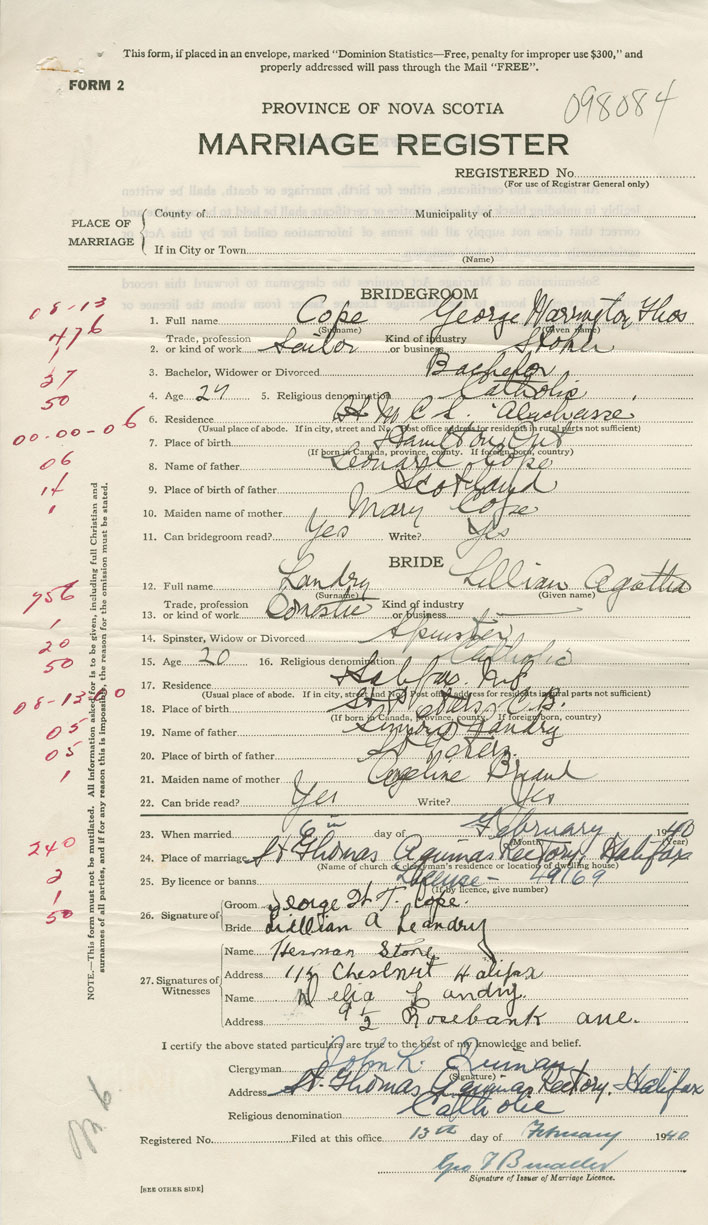 This form, if placed in an envelope, marked "Dominion Statistics—Free, penalty for improper use $300," and
properly addressed will pass through the Mail "FREE".
FORM 2
098084
PROVINCE OF NOVA SCOTIA
MARRIAGE REGISTER
REGISTERED No.
(For use of Registrar General only)
PLACE OF MARRIAGE
County of Municipality of
If in City or Town
(Name)
BRIDEGROOM
08-13
1. Full name Cope George Harrington Thos
(Surname) (Given name)
476
Trade, profession Kind of industry
2. or kind of work Sailor or business Stoker
1
3. Bachelor, Widower or Divorced Bachelor
27
4. Age 27 5. Religious denomination Catholic
50
6. Residence H.M.C.S.
(Usual place of abode. If in city, street and No. Post office address for residents in rural parts not sufficient)
00-00-06
7. Place of birth Hamilton, Ont
(If born in Canada, province, county. If foreign born, country)
06
8. Name of father Leonard Cope
14
9. Place of birth of father Scotland
1
10. Maiden name of mother Mary Cope
11. Can bridegroom read? Yes Write? Yes
BRIDE
12. Full name Landry Lillian Agatha
(Surname) (Given name)
756
Trade, profession Kind of industry
13. or kind of work Domestic or business
1
14. Spinster, Widow or Divorced Spinster
20
15. Age 20 16. Religious denomination Catholic
50
17. Residence Halifax. N.S.
(Usual place of abode. If in city, street and No. Post office address for residents in rural parts not sufficient)
08-13-00
18. Place of birth St. Peters C.B.
(If born in Canada, province, county. If foreign born, country)
05
19. Name of father Landry
05
20. Place of birth of father St Peters.
1
21. Maiden name of mother
22. Can bride read? Yes Write? Yes
23. When married 6th day of February 1940
(Month) (Year)
240
24. Place of marriage St Thomas Aquinas Rectory, Halifax
(Name of church or clergyman's residence or location of dwelling house)
2
25. By licence or banns License - 49169
(If by licence, give number)
1
50
26. Signature of
Groom George H. T. Cope.
Bride Lillian A Landry
27. Signatures of Witnesses
Name Herman Stone
Address Chestnut Halifax
Name Delia Landry.
Address 9 1/2 Rosebank ave.
NOTE.—This form must not be mutilated. All information asked for is to be given, including full Christian and
surnames of all parties, and if for any reason this is impossible, the reason for the omission must be stated.
I certify the above stated particulars are true to the best of my knowledge and belief.
Clergyman John L. Quinan
(Signature)
Address St. Thomas Aquinas Rectory, Halifax
Religious denomination Catholic
Registered No. Filed at this office 13th day of February 1940
Geo T
Signature of Issuer of Marriage Licence.
[SEE OTHER SIDE]